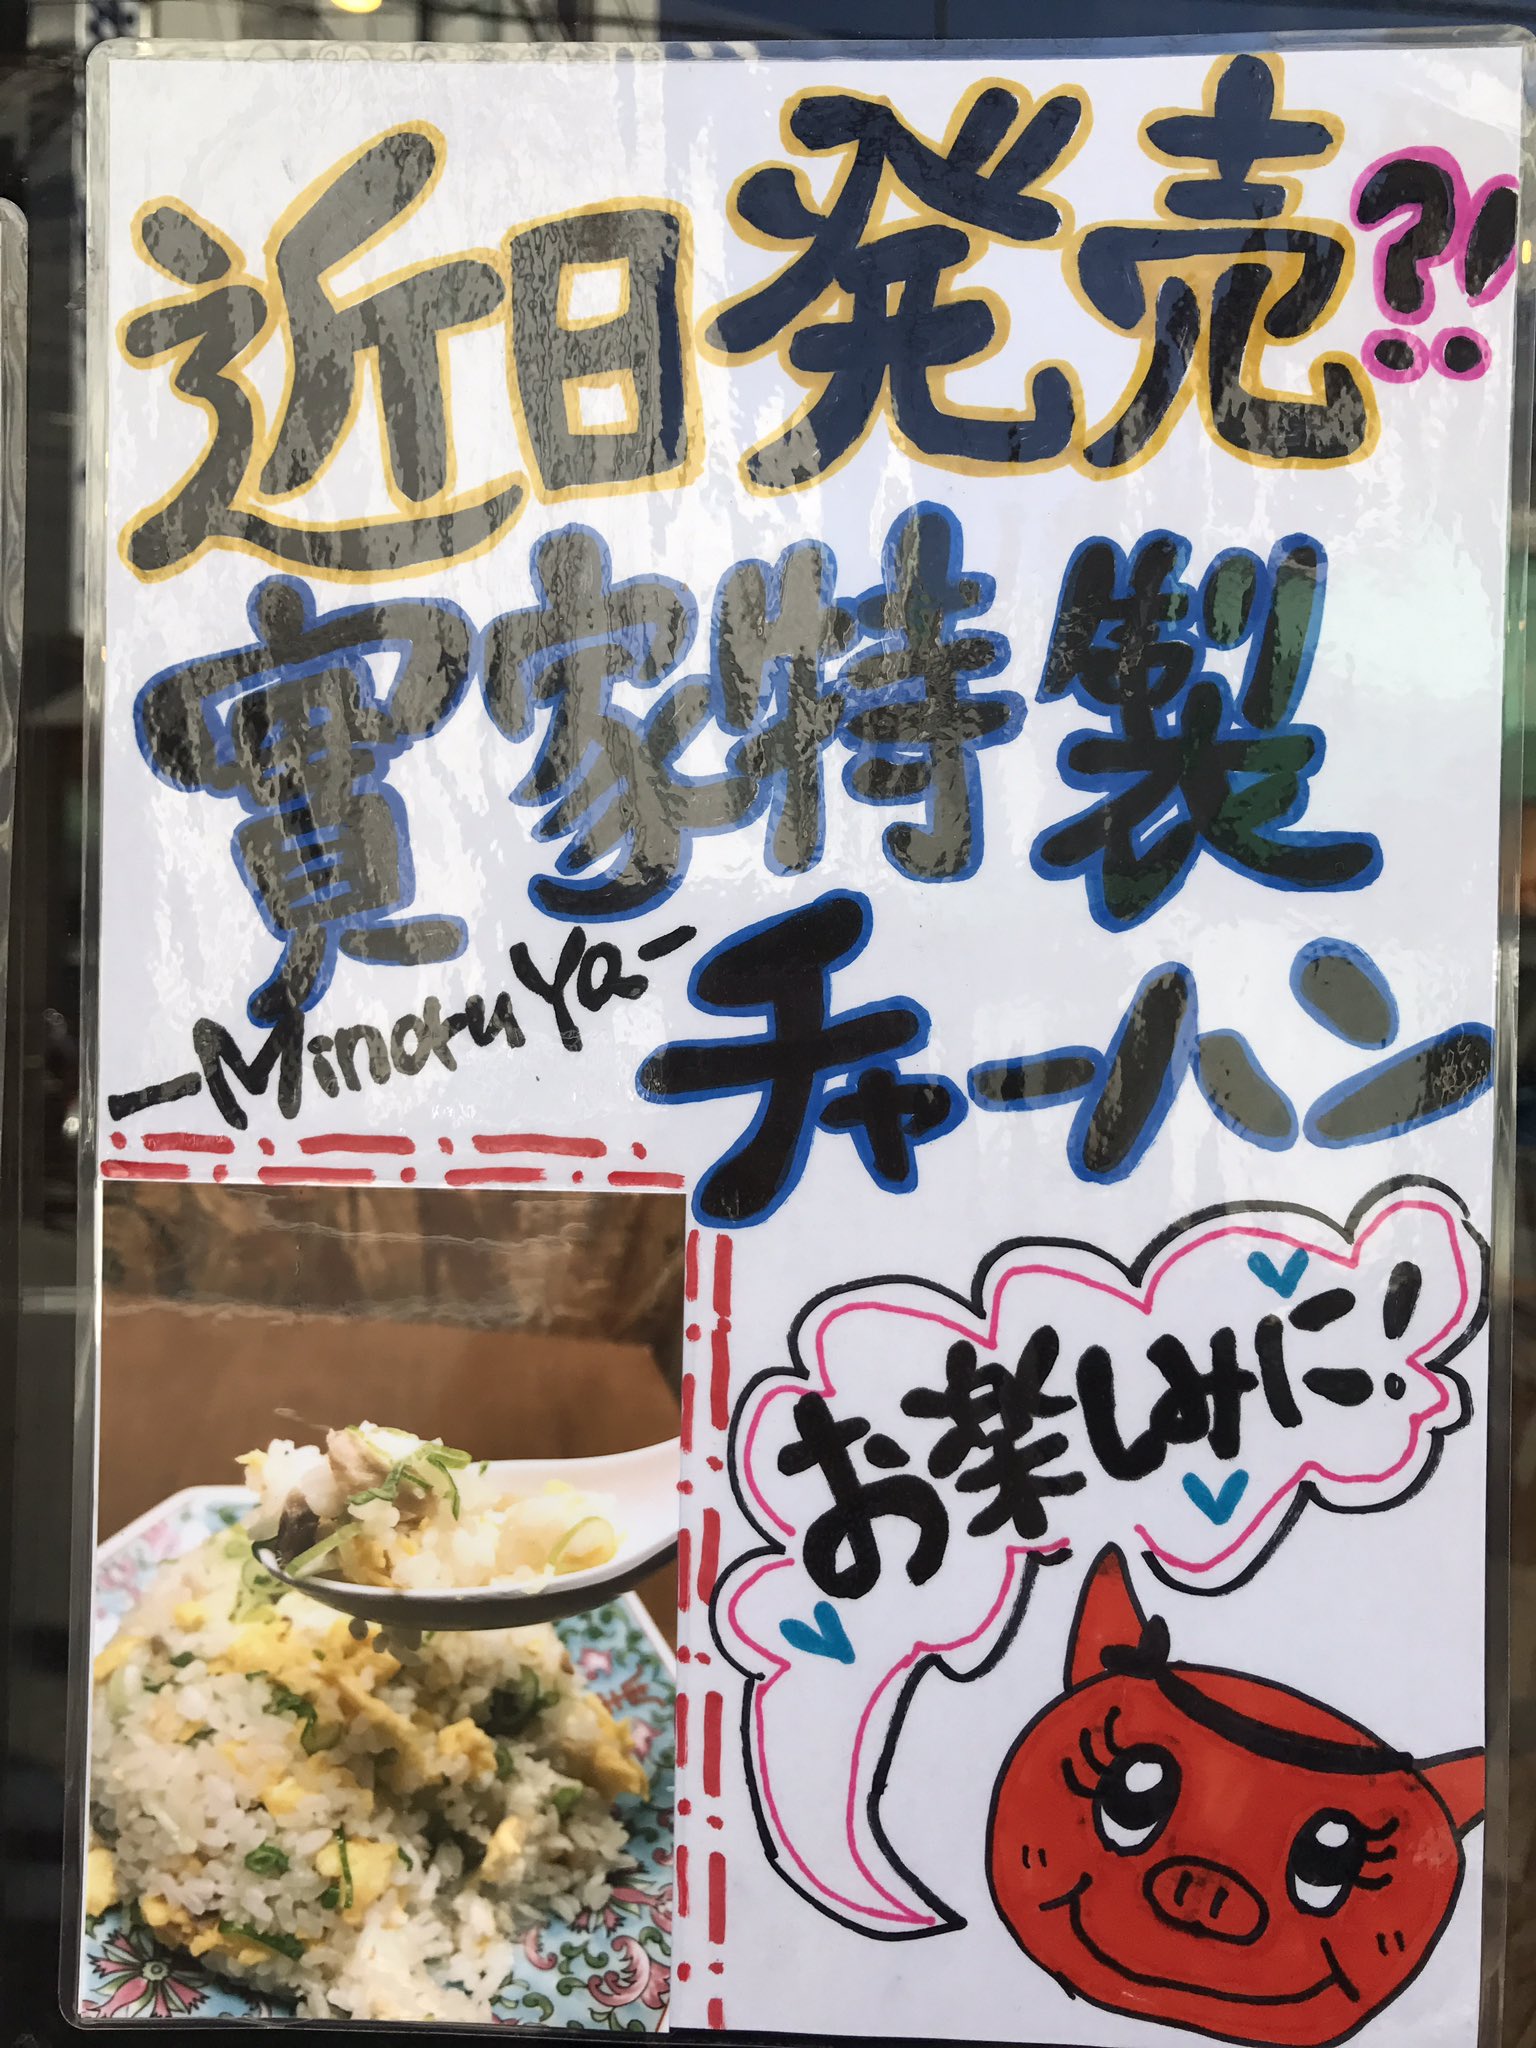 近日発売?!
實家特製
-Minoru Ya-
チャーハン
お楽しみに!